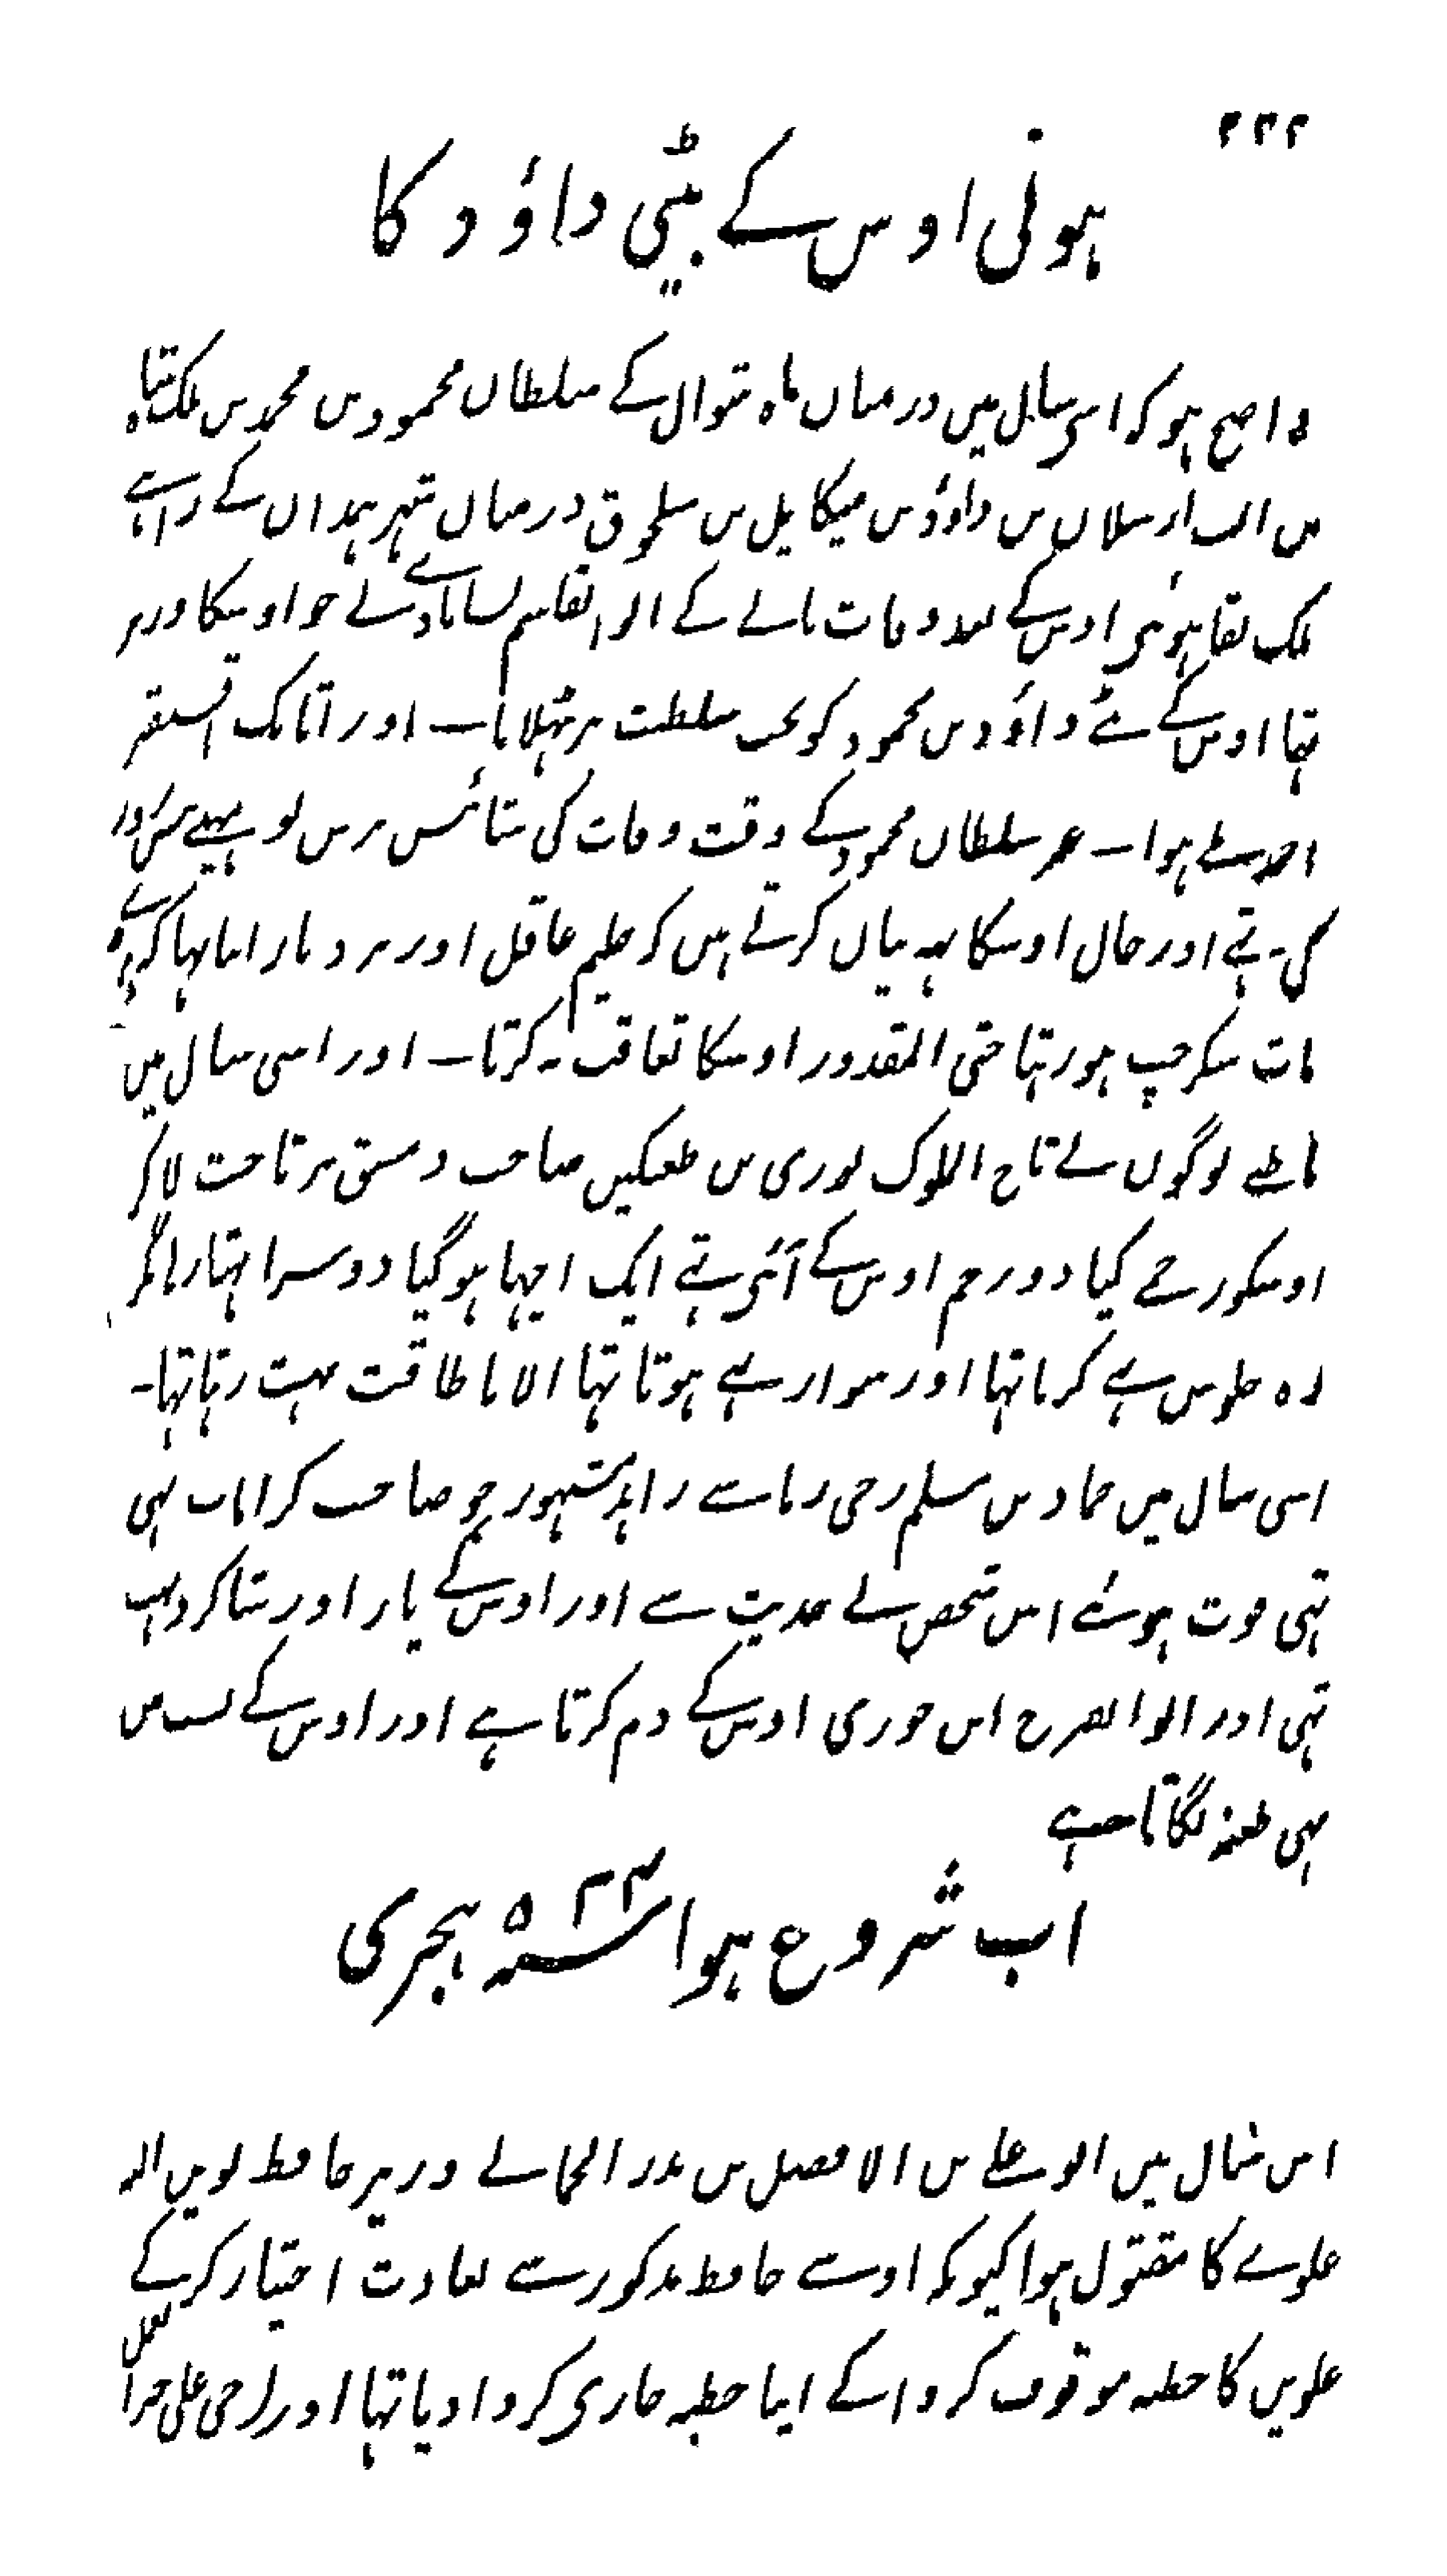 ۲۲۲
ہونی اوس کے بیٹی داؤد کا
واضح ہو کہ اسی سال میں درمیان ماہ شوال کے سلطان محمود بن محمد بن ملک شاہ
بن الب ارسلان بن داؤد بن میکاییل بن سلجوق درمیان شہر ہمدان کے راہی
ملک بقا ہوئی اوس کے بعد وفات پانے کے ابو القاسم نساباذی نے جو اوسکا وزیر
تہا اوس کے بیٹے داؤد بن محمود کو تخت سلطنت پر بٹہلایا۔ اور اتابک اقسنقر
احمدیلے ہوا۔ عمر سلطان محمود کے وقت وفات کی ستائیس برس نو مہینے
کی تہے اور حال اوسکا یہہ بیان کرتے ہیں کہ حلیم عاقل اور بردبار ایسا تہا کہ
بات سنکر چپ ہو رہتا حتی المقدور اوسکا تعاقب نہ کرتا۔ اور اسی سال میں
باطنے لوگوں نے تاج الملوک بوری بن طغتکین صاحب دمشق پر تاخت لا کر
اوسکو زخمے کیا دو زخم اوس کے آئی تہے ایک اچہا ہو گیا دوسرا بہتا رہا مگر
وہ جلوس بہے کرتا تہا اور سوار بہے ہوتا تہا الا ناطاقت بہت رہتا تہا۔
اسی سال میں حماد بن مسلم رحبی دباسے زاہد مشہور جو صاحب کرامات بہی
تہی فوت ہوئے اس شخص نے حدیث سنے اور اوس کے یار اور شاگرد بہت
تہی اور ابو الفرج ابن جوزی اوس کے ذم کرتا ہے اور اوس کے نسب میں
بہی طعنہ لگاتا ہے
اب شروع ہوا سنہ ۵۲۶ ہجری
اس سال میں ابو علے بن الافضل بن بدر الجمالے وزیر حافظ لدین اللہ
علوے کا مقتول ہوا کیونکہ اوسے حافظ مذکور سے بغاوت اختیار کر کے
علویں کا خطبہ موقوف کروا کے اپنا خطبہ جاری کروا دیا تہا اور اذان حی علی خیر العمل